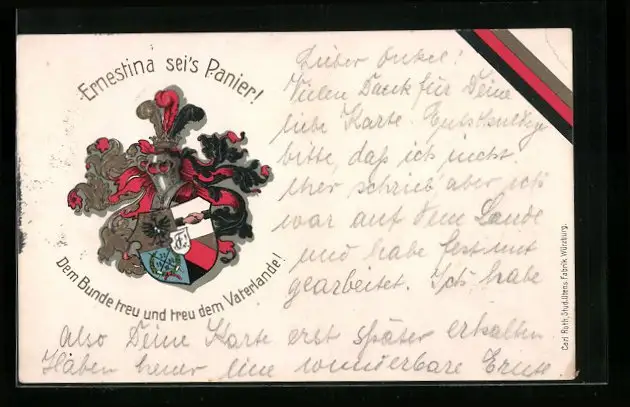 Ernestina sei's Panier!
Dem Bunde treu und treu dem Vaterlande!
Lieber Onkel!
Vielen Dank für Deine
liebe Karte. Entschuldige
bitte, daß ich nicht
eher schrieb, aber ich
war auf dem Lande
und habe fest mit
gearbeitet. Ich habe
also Deine Karte erst später erhalten
Haben heuer eine wunderbare Ernte
Carl Roth, Stud. Utens. Fabrik Würzburg.